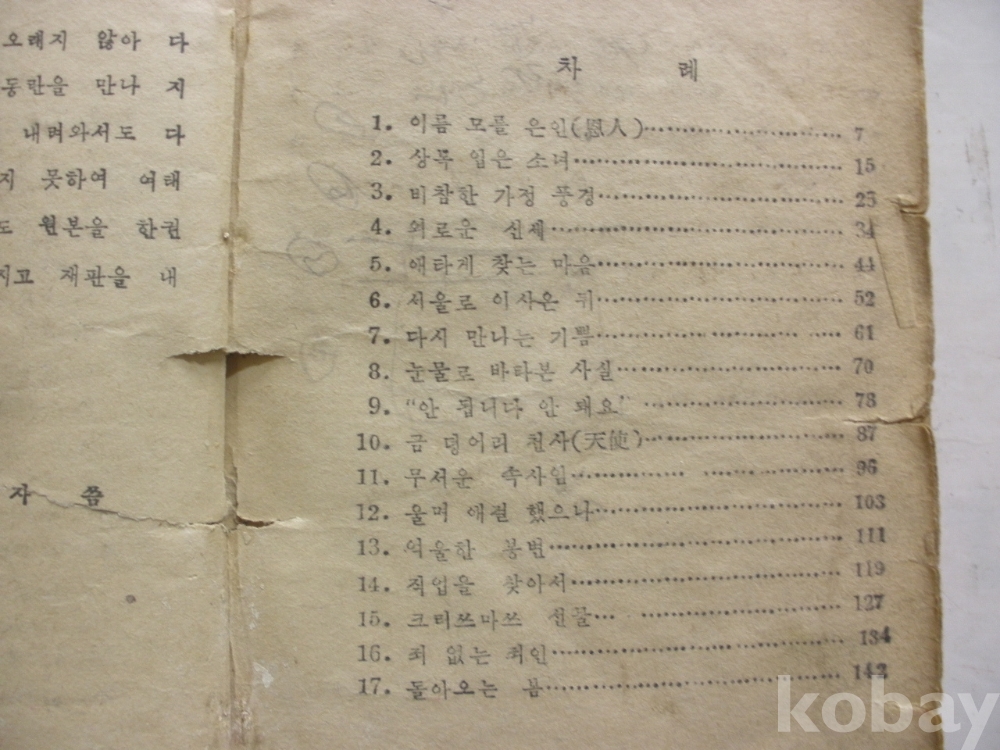 오래지 않아 다
동란을 만나 지
내려와서도 다
지 못하여 여태
도 원본을 한권
지고 재판을 내
자 씀
차 례
1. 이름 모를 은인(恩人)…………………… 7
2. 상복 입은 소녀…………………… 15
3. 비참한 가정 풍경…………………… 25
4. 외로운 신세…………………… 34
5. 애타게 찾는 마음…………………… 44
6. 서울로 이사온 뒤…………………… 52
7. 다시 만나는 기쁨…………………… 61
8. 눈물로 바라본 사실…………………… 70
9. “안 됩니다 안 돼요”…………………… 78
10. 금 덩어리 천사(天使)…………………… 87
11. 무서운 속사임…………………… 96
12. 울며 애걸 했으나…………………… 103
13. 억울한 봉변…………………… 111
14. 직업을 찾아서…………………… 119
15. 크리쓰마쓰 선물…………………… 127
16. 죄 없는 죄인…………………… 134
17. 돌아오는 봄…………………… 142
kobay